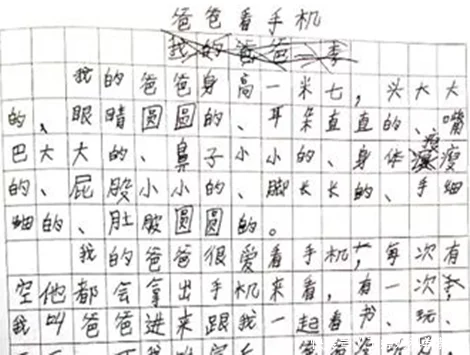 爸爸看手机
我的爸爸一李
我的爸爸身高一米七，头大大
的、眼睛圆圆的、耳朵直直的、嘴
巴大大的、鼻子小小的、身体瘦瘦
的、屁股小小的、脚长长的、手细
细的、肚皮圆圆的。
我的爸爸很爱看手机，每次有
空他都会拿出手机来看，有一次，
我叫爸爸进来跟我一起看书、玩、